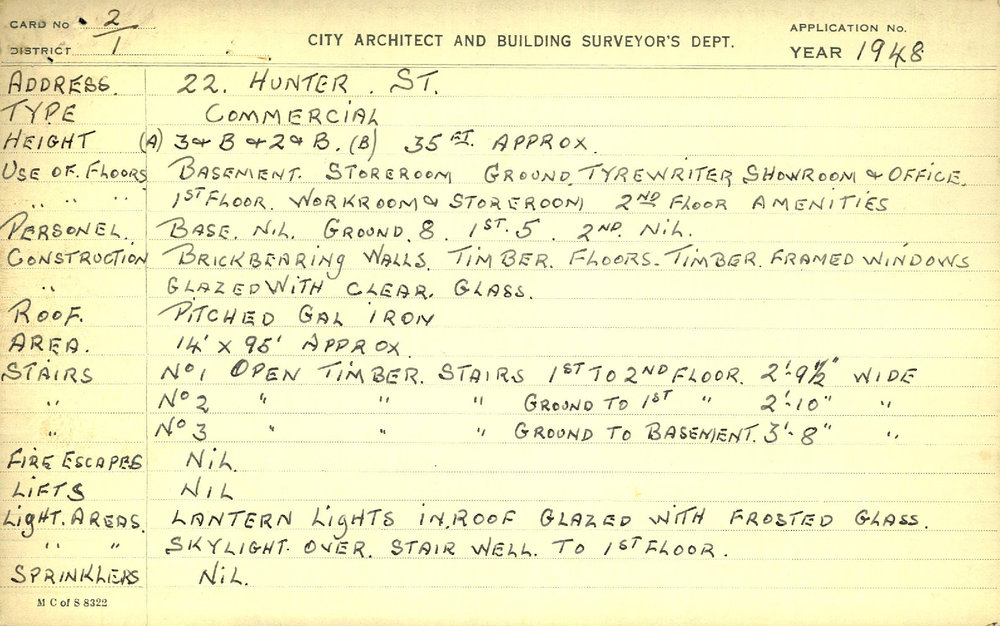 CARD No 2
DISTRICT 1
CITY ARCHITECT AND BUILDING SURVEYOR'S DEPT.
APPLICATION No.
YEAR 1948
ADDRESS. 22. HUNTER. ST.
TYPE COMMERCIAL
HEIGHT (A) 3 & B & 2 & B. (B) 35 FT. APPROX.
USE OF. FLOORS BASEMENT. STOREROOM GROUND. TYREWRITER SHOWROOM & OFFICE.
" " " 1ST FLOOR. WORKROOM & STOREROOM 2ND FLOOR AMENITIES
PERSONEL. BASE. NIL. GROUND. 8. 1ST. 5. 2ND. NIL.
CONSTRUCTION BRICKBEARING WALLS. TIMBER. FLOORS. TIMBER. FRAMED WINDOWS
" GLAZED WITH CLEAR. GLASS.
ROOF. PITCHED GAL IRON
AREA. 14' x 95' APPROX.
STAIRS No 1 OPEN TIMBER. STAIRS 1ST TO 2ND FLOOR. 2'-9½" WIDE
" No 2 " " " GROUND TO 1ST " 2'-10" "
" No 3 " " " GROUND TO BASEMENT. 3'-8" "
FIRE ESCAPES NIL.
LIFTS NIL
LIGHT. AREAS. LANTERN LIGHTS IN. ROOF GLAZED WITH FROSTED GLASS.
" " SKYLIGHT. OVER. STAIR WELL. TO 1ST FLOOR.
SPRINKLERS NIL.
M C of S 8322